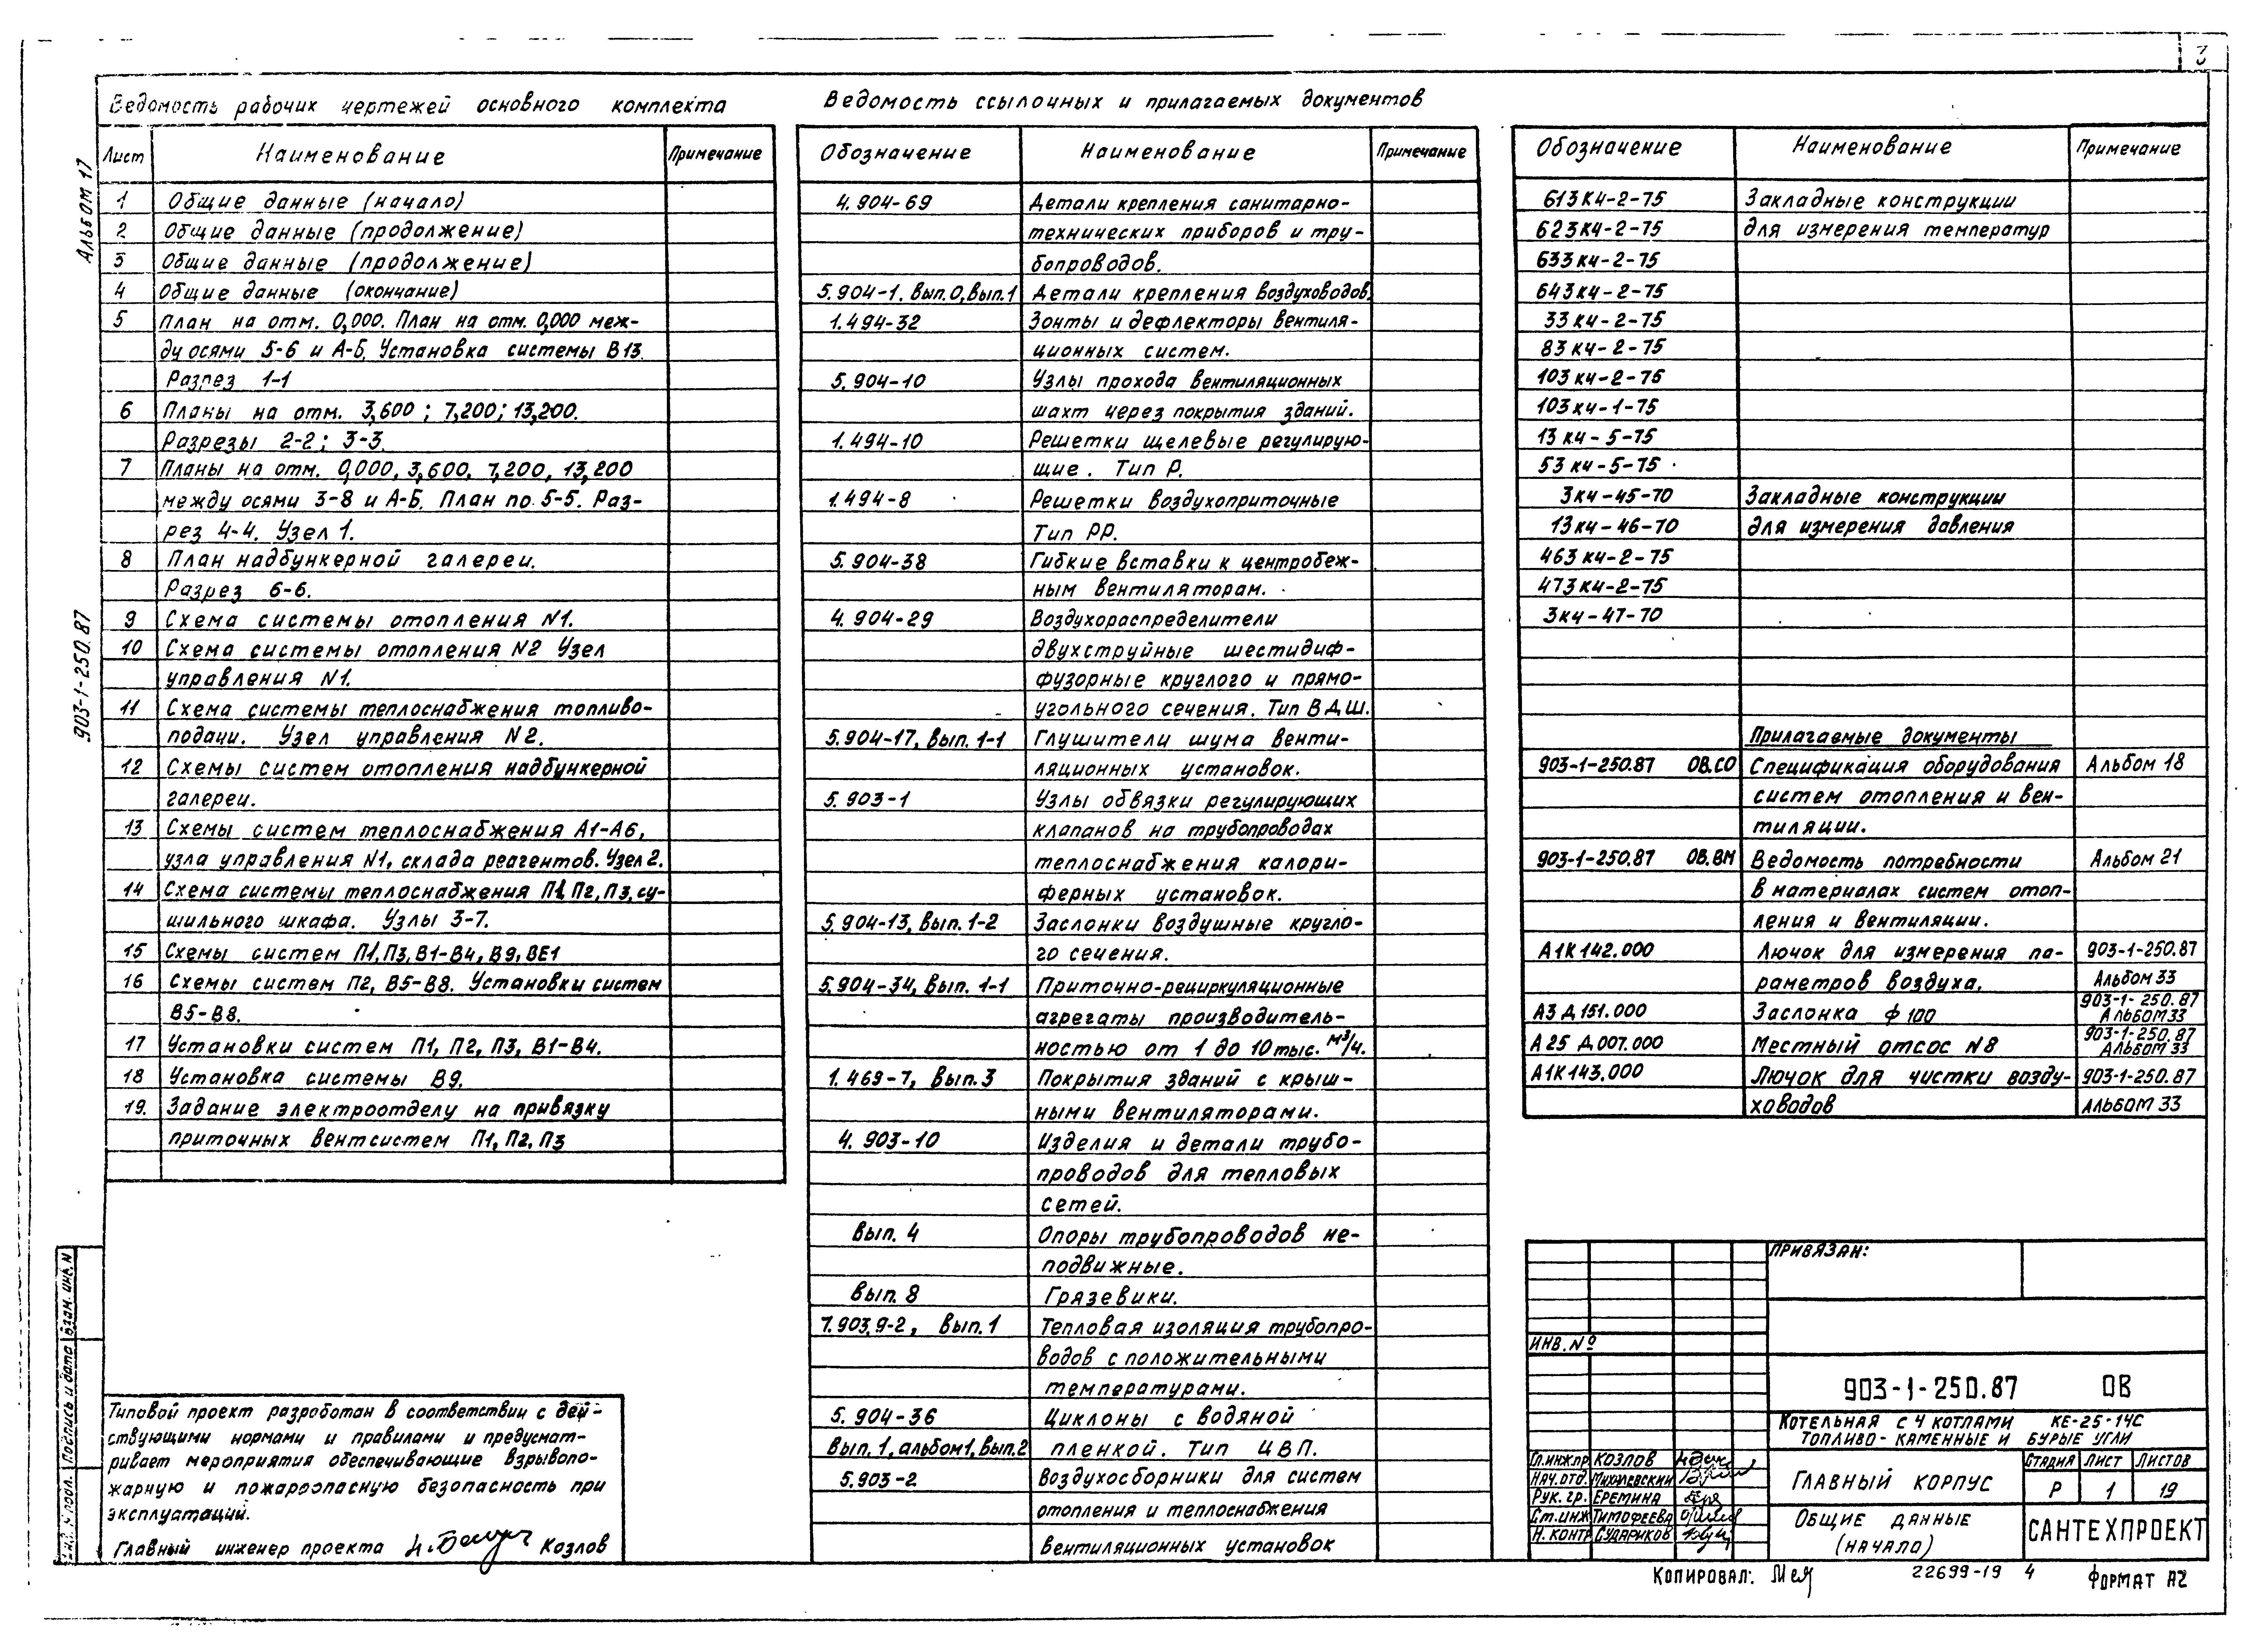 3
Альбом 17
903-1-250.87
Ведомость рабочих чертежей основного комплекта
Лист Наименование Примечание
1 Общие данные (начало)
2 Общие данные (продолжение)
3 Общие данные (продолжение)
4 Общие данные (окончание)
5 План на отм. 0,000. План на отм. 0,000 меж-
ду осями 5-6 и А-Б. Установка системы В13.
Разрез 1-1
6 Планы на отм. 3,600; 7,200; 13,200.
Разрезы 2-2; 3-3.
7 Планы на отм. 0,000, 3,600, 7,200, 13,200
между осями 3-8 и А-Б. План по 5-5. Раз-
рез 4-4. Узел 1.
8 План надбункерной галереи.
Разрез 6-6.
9 Схема системы отопления N1.
10 Схема системы отопления N2 Узел
управления N1.
11 Схема системы теплоснабжения топливо-
подачи. Узел управления N2.
12 Схемы систем отопления надбункерной
галереи.
13 Схемы систем теплоснабжения А1-А6,
узла управления N1, склада реагентов. Узел 2.
14 Схема системы теплоснабжения П1, П2, П3, су-
шильного шкафа. Узлы 3-7.
15 Схемы систем П1, П3, В1-В4, В9, ВЕ1
16 Схемы систем П2, В5-В8. Установки систем
В5-В8.
17 Установки систем П1, П2, П3, В1-В4.
18 Установка системы В9.
19. Задание электроотделу на привязку
приточных вентсистем П1, П2, П3
Типовой проект разработан в соответствии с дей-
ствующими нормами и правилами и предусмат-
ривает мероприятия обеспечивающие взрывопо-
жарную и пожароопасную безопасность при
эксплуатаций.
Главный инженер проекта Козлов
Подпись и дата Взам. инв. N
Ведомость ссылочных и прилагаемых документов
Обозначение Наименование Примечание
4.904-69 Детали крепления санитарно-
технических приборов и тру-
бопроводов.
5.904-1. Вып.0, вып.1 Детали крепления воздуховодов.
1.494-32 Зонты и дефлекторы вентиля-
ционных систем.
5.904-10 Узлы прохода вентиляционных
шахт через покрытия зданий.
1.494-10 Решетки щелевые регулирую-
щие. Тип Р.
1.494-8 Решетки воздухоприточные
Тип РР.
5.904-38 Гибкие вставки к центробеж-
ным вентиляторам.
4.904-29 Воздухораспределители
двухструйные шестидиф-
фузорные круглого и прямо-
угольного сечения. Тип ВДШ.
5.904-17, вып. 1-1 Глушители шума венти-
ляционных установок.
5.903-1 Узлы обвязки регулирующих
клапанов на трубопроводах
теплоснабжения калори-
ферных установок.
5.904-13, вып. 1-2 Заслонки воздушные кругло-
го сечения.
5.904-34, вып. 1-1 Приточно-рециркуляционные
агрегаты производитель-
ностью от 1 до 10 тыс. м³/ч.
1.469-7, вып.3 Покрытия зданий с крыш-
ными вентиляторами.
4.903-10 Изделия и детали трубо-
проводов для тепловых
сетей.
Вып. 4 Опоры трубопроводов не-
подвижные.
Вып. 8 Грязевики.
7.903.9-2, Вып.1 Тепловая изоляция трубопро-
водов с положительными
температурами.
5.904-36 Циклоны с водяной
Вып. 1, альбом 1, вып.2 пленкой. Тип ЦВП.
5.903-2 Воздухосборники для систем
отопления и теплоснабжения
вентиляционных установок
Обозначение Наименование Примечание
613К4-2-75 Закладные конструкции
623К4-2-75 для измерения температур
633К4-2-75
643К4-2-75
33К4-2-75
83К4-2-75
103К4-2-76
103К4-1-75
13К4-5-75
53К4-5-75
3К4-45-70 Закладные конструкции
13К4-46-70 для измерения давления
463К4-2-75
473К4-2-75
3К4-47-70
Прилагаемые документы
903-1-250.87 ОВ.СО Спецификация оборудования Альбом 18
систем отопления и вен-
тиляции.
903-1-250.87 ОВ.ВМ Ведомость потребности Альбом 21
в материалах систем отоп-
ления и вентиляции.
А1К142.000 Лючок для измерения па- 903-1-250.87
раметров воздуха. Альбом 33
А3Д151.000 Заслонка ф100 903-1-250.87 Альбом 33
А25Д.007.000 Местный отсос N8 903-1-250.87 Альбом 33
А1К143.000 Лючок для чистки возду- 903-1-250.87
ховодов Альбом 33
Привязан:
Инв. №
903-1-250.87 ОВ
Котельная с 4 котлами КЕ-25-14С
Топливо-каменные и бурые угли
Гл.инж.пр. Козлов
Нач.отд. Михалевский
Рук. гр. Еремина
Ст.инж Тимофеева
Н. контр Судариков
Главный корпус
Стадия Лист Листов
Р 1 19
Общие данные
(начало)
САНТЕХПРОЕКТ
Копировал: 22699-19 4 Формат А2